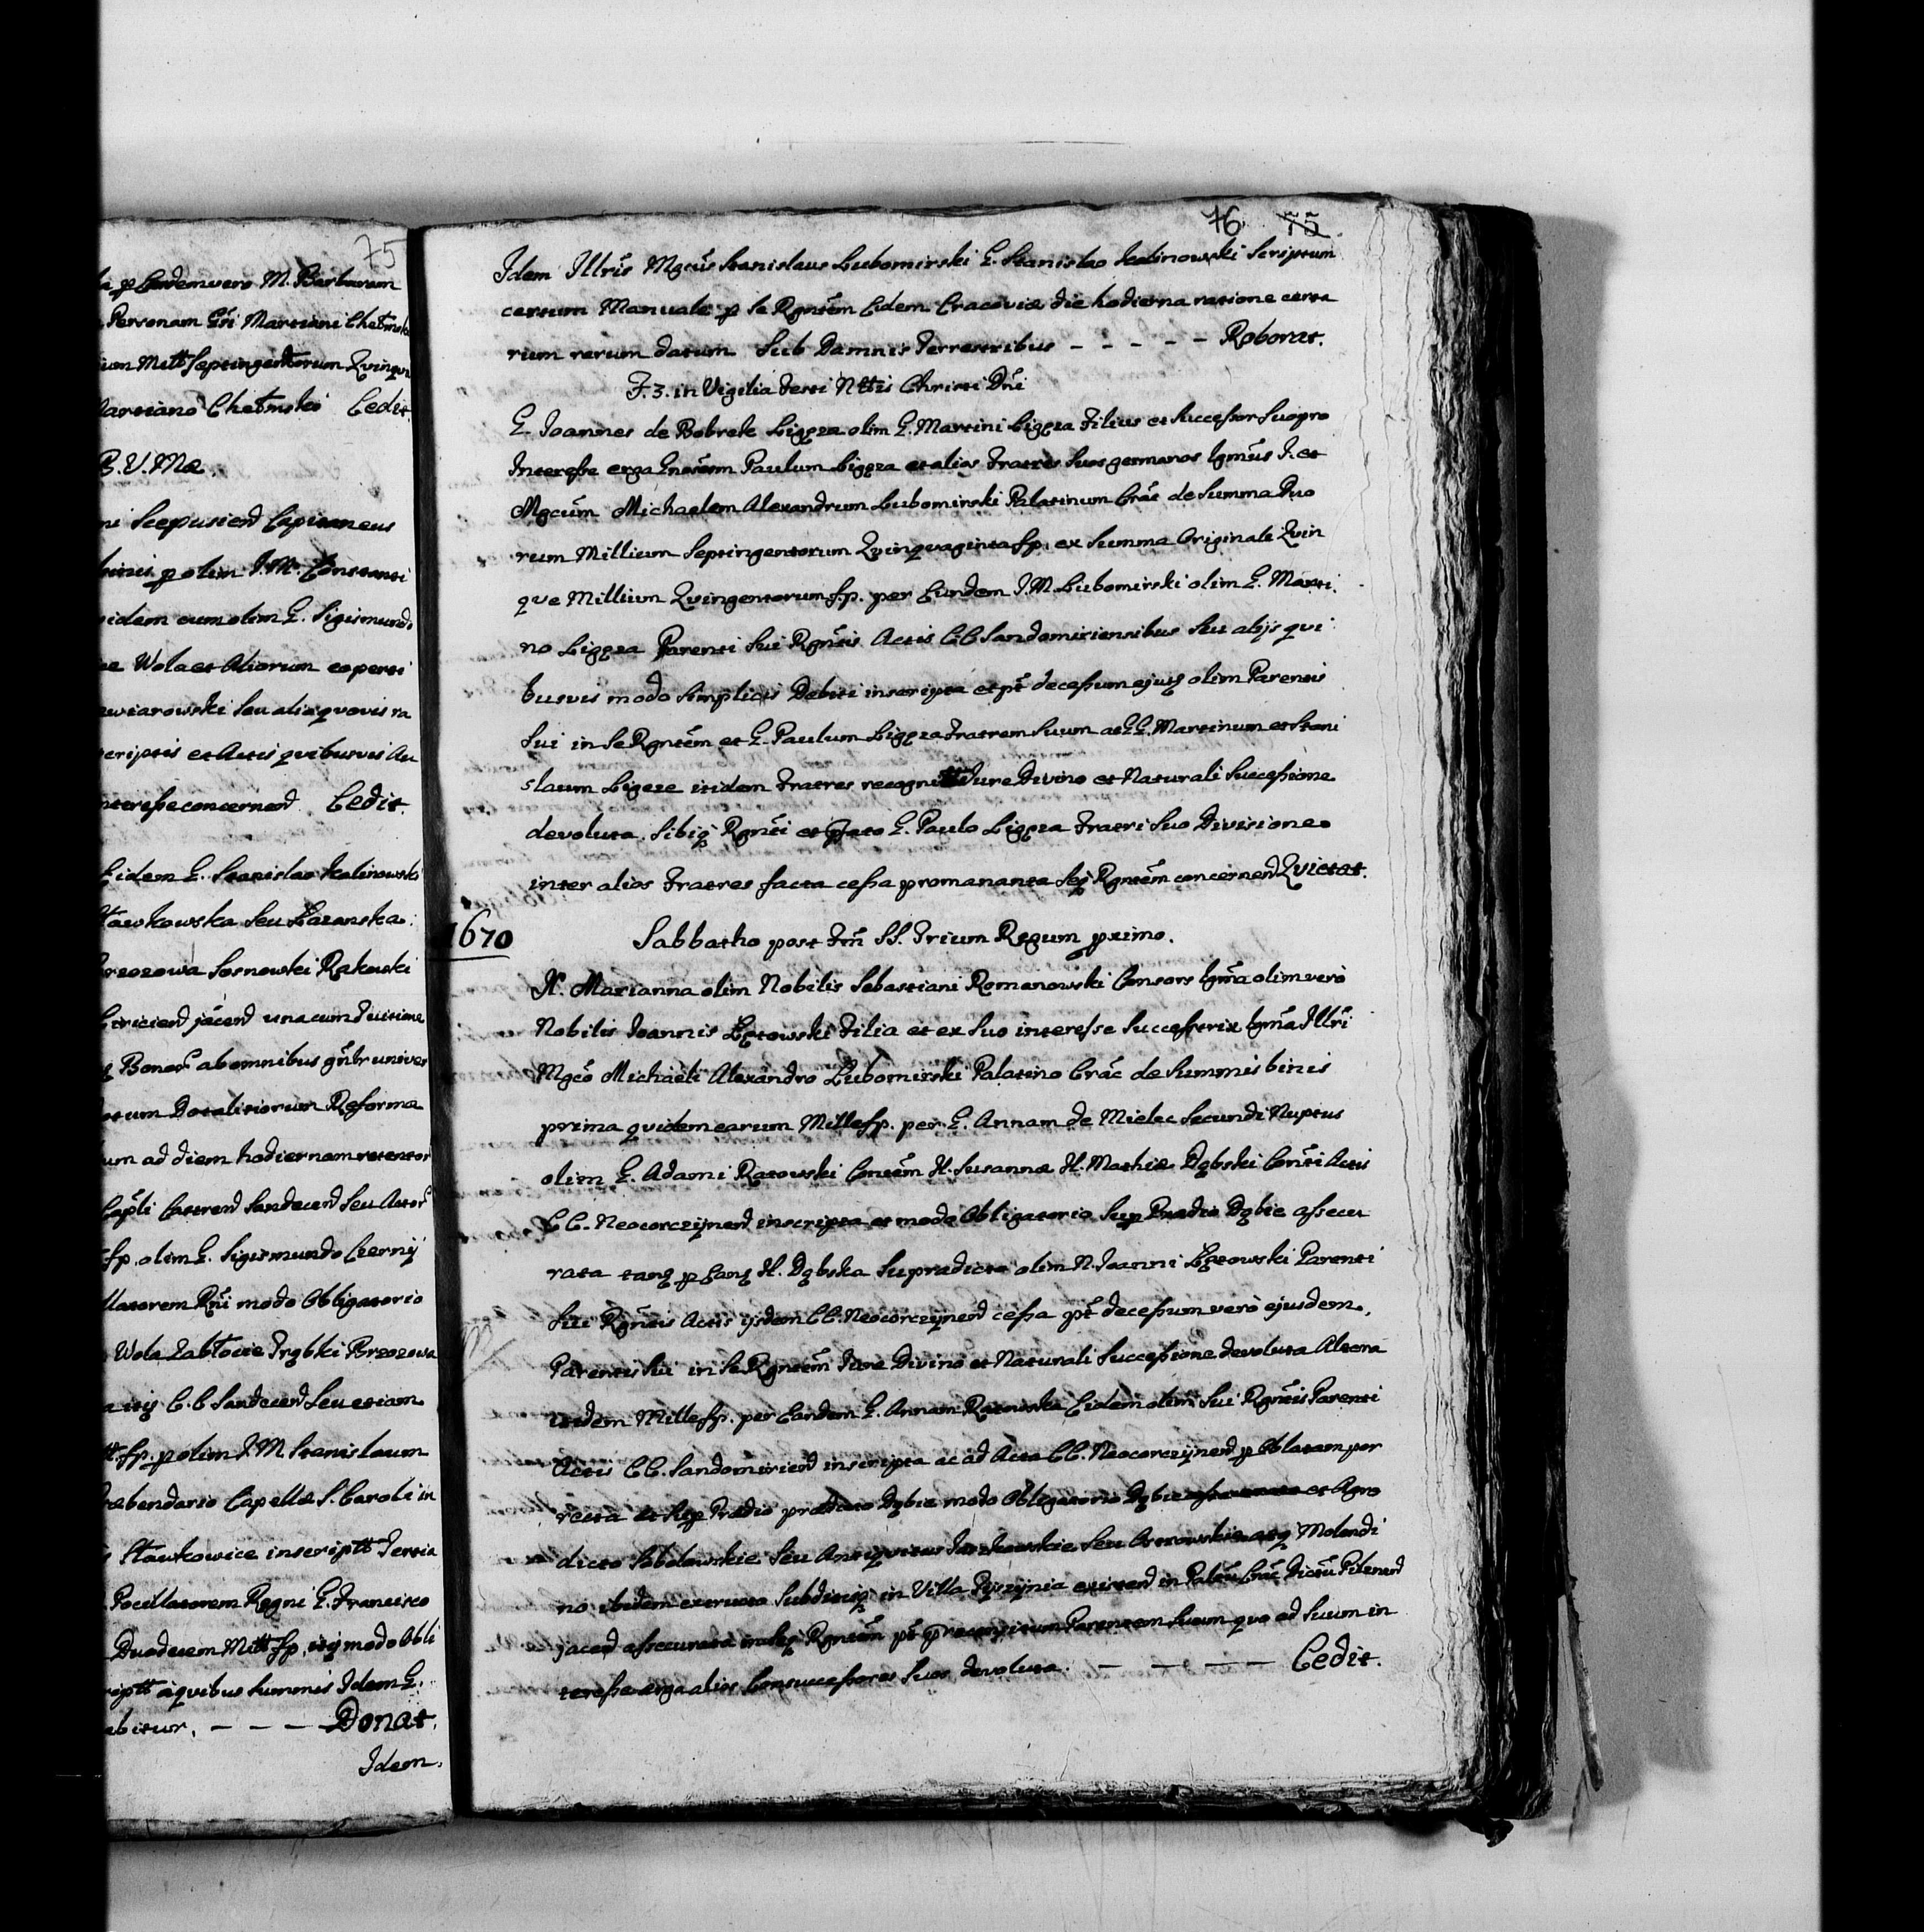 75
la p Eandem vero M. Barbaram
Personam Gñi Martiani Chełmski
ium Mitt Septingentorum Qvinqva
Martiano Chełmski Cedit.
B. V. Mæ
ni Scepusien Capitaneus
binis p olim I. M. Constanti
idem cum olim G. Sigismundo
Wola et Aliorum
Seu alia qvovis ra
scriptis et Actis qvibusvis Au
nteresse concernen Cedit.
Eidem G. Stanislao Kalinowski
Sławkowska Seu Łazanska
Brzozowa Sosnowski Rakowski
jacen una cum
Bonor ab omnibus gñlr univer
Dotalitiorum Reforma
um ad diem hodiernam retentor
Capli Castren Sandecen Seu Actor
fp. olim G. Sigismundo Czerny
modo Obligatorio
Wola Zabłocie Trąbki Brzozowa
C. C. Sandecen Seu etiam
fp. p olim I M Stanislaum
ræbendario Capellæ S. Caroli in
Sławkowice inscriptt Tertia
Pocillatorem Regni G. Francisco
Duodecem Mitt fp. itq modo Obli
riptt a qvibus Summis Idem G.
abitur. – – – Donat.
Idem.
76 75
Idem Illris Mgcus Stanislaus Lubomirski G. Stanislao Kalinowski Scriptum
certum Manuale p Se Rgntem Eidem Cracoviæ die hodierna ratione certa
rum rerum datum Sub Damnis Terrestribus – – – – – Roborat.
F. 3. in Vigilia Festi Nttis Christi Dni
G. Joannes de Bobrek Ligęza olim G. Martini Ligęza Filius et Successor Suo pro
Interesse erga Gnosum Paulum Ligęza et alios Fratres Suos germanos Igmus I. et
Mgcum Michaelem Alexandrum Lubomirski Palatinum Crac de Summa Duo
rum Millium Septingentorum Qvinqvaginta fp. ex Summa Originali Qvin
qve Millium Qvingentorum fp. per Eundem I. M. Lubomirski olim G. Marti
no Ligęza Parenti Sui Rgntis Actis CC Sandomiriensibus Seu alijs qvi
busvis modo Simplicis Debiti inscripta et pt decessum ejusq olim Parentis
Sui in Se Rgntem et G. Paulum Ligęza Fratrem Suum ac GG. Martinum et Stani
slaum Ligęze itidem Fratres recognitt Jure Divino et Naturali Successione
devoluta. Sibiq Rgnti et pfato G. Paulo Ligęza Fratri Suo Divisione
inter alios Fratres facta cessa promananta Seq Rgntem concernen Qvictat.
1670 Sabbatho post Fm SS. Trium Regum primo.
N. Marianna olim Nobilis Sebastiani Romanowski Consors Igma olim vero
Nobilis Joannis Łętowski Filia et ex Suo interesse Successtrix Igma Illri
Mgco Michaeli Alexandro Lubomirski Palatino Crac de Summis binis
prima qvidem earum Mille fp. per G. Annam de Mielec Secundi Nuptus
olim G. Adami Ratowski Contem N. Susannæ N. Mathiæ Dąbski Conti Actis
CC. Neocorczynen inscripta et modo Obligatorio Sup Prædio Dąbie assecu
rata tanq p Eanq N. Dąbska Supradicta olim N. Joanni Łętowski Parenti
Sui Rgntis Actis ijsdem CC. Neocorczynen cessa pt decessum vero ejusdem
Parentis Sui in Se Rgntem Jure Divino et Naturali Successione devoluta Altera
itidem Mille fp. per Eandem G. Annam Ratowska Eidem olim Sui Rgntis Parenti
Actis CC. Sandomirien inscripta ac ad Acta CC. Neocorczynen p Oblatam por
recta et Sup Prædio prædicto Dąbie modo Obligatorio Dąbie et Agro
dicto Sobolowskie Seu Antiqvitus Seu atq Molendi
no ibidem extructo Subditisq in Villa existen in Palatu Crac Dictu Pilznen
jacen assecurata in Seq Rgntem pt Parentem Suum qvo ad Suum in
teresse erga alios Consuccessores Suos devoluta. – – – – Cedit.